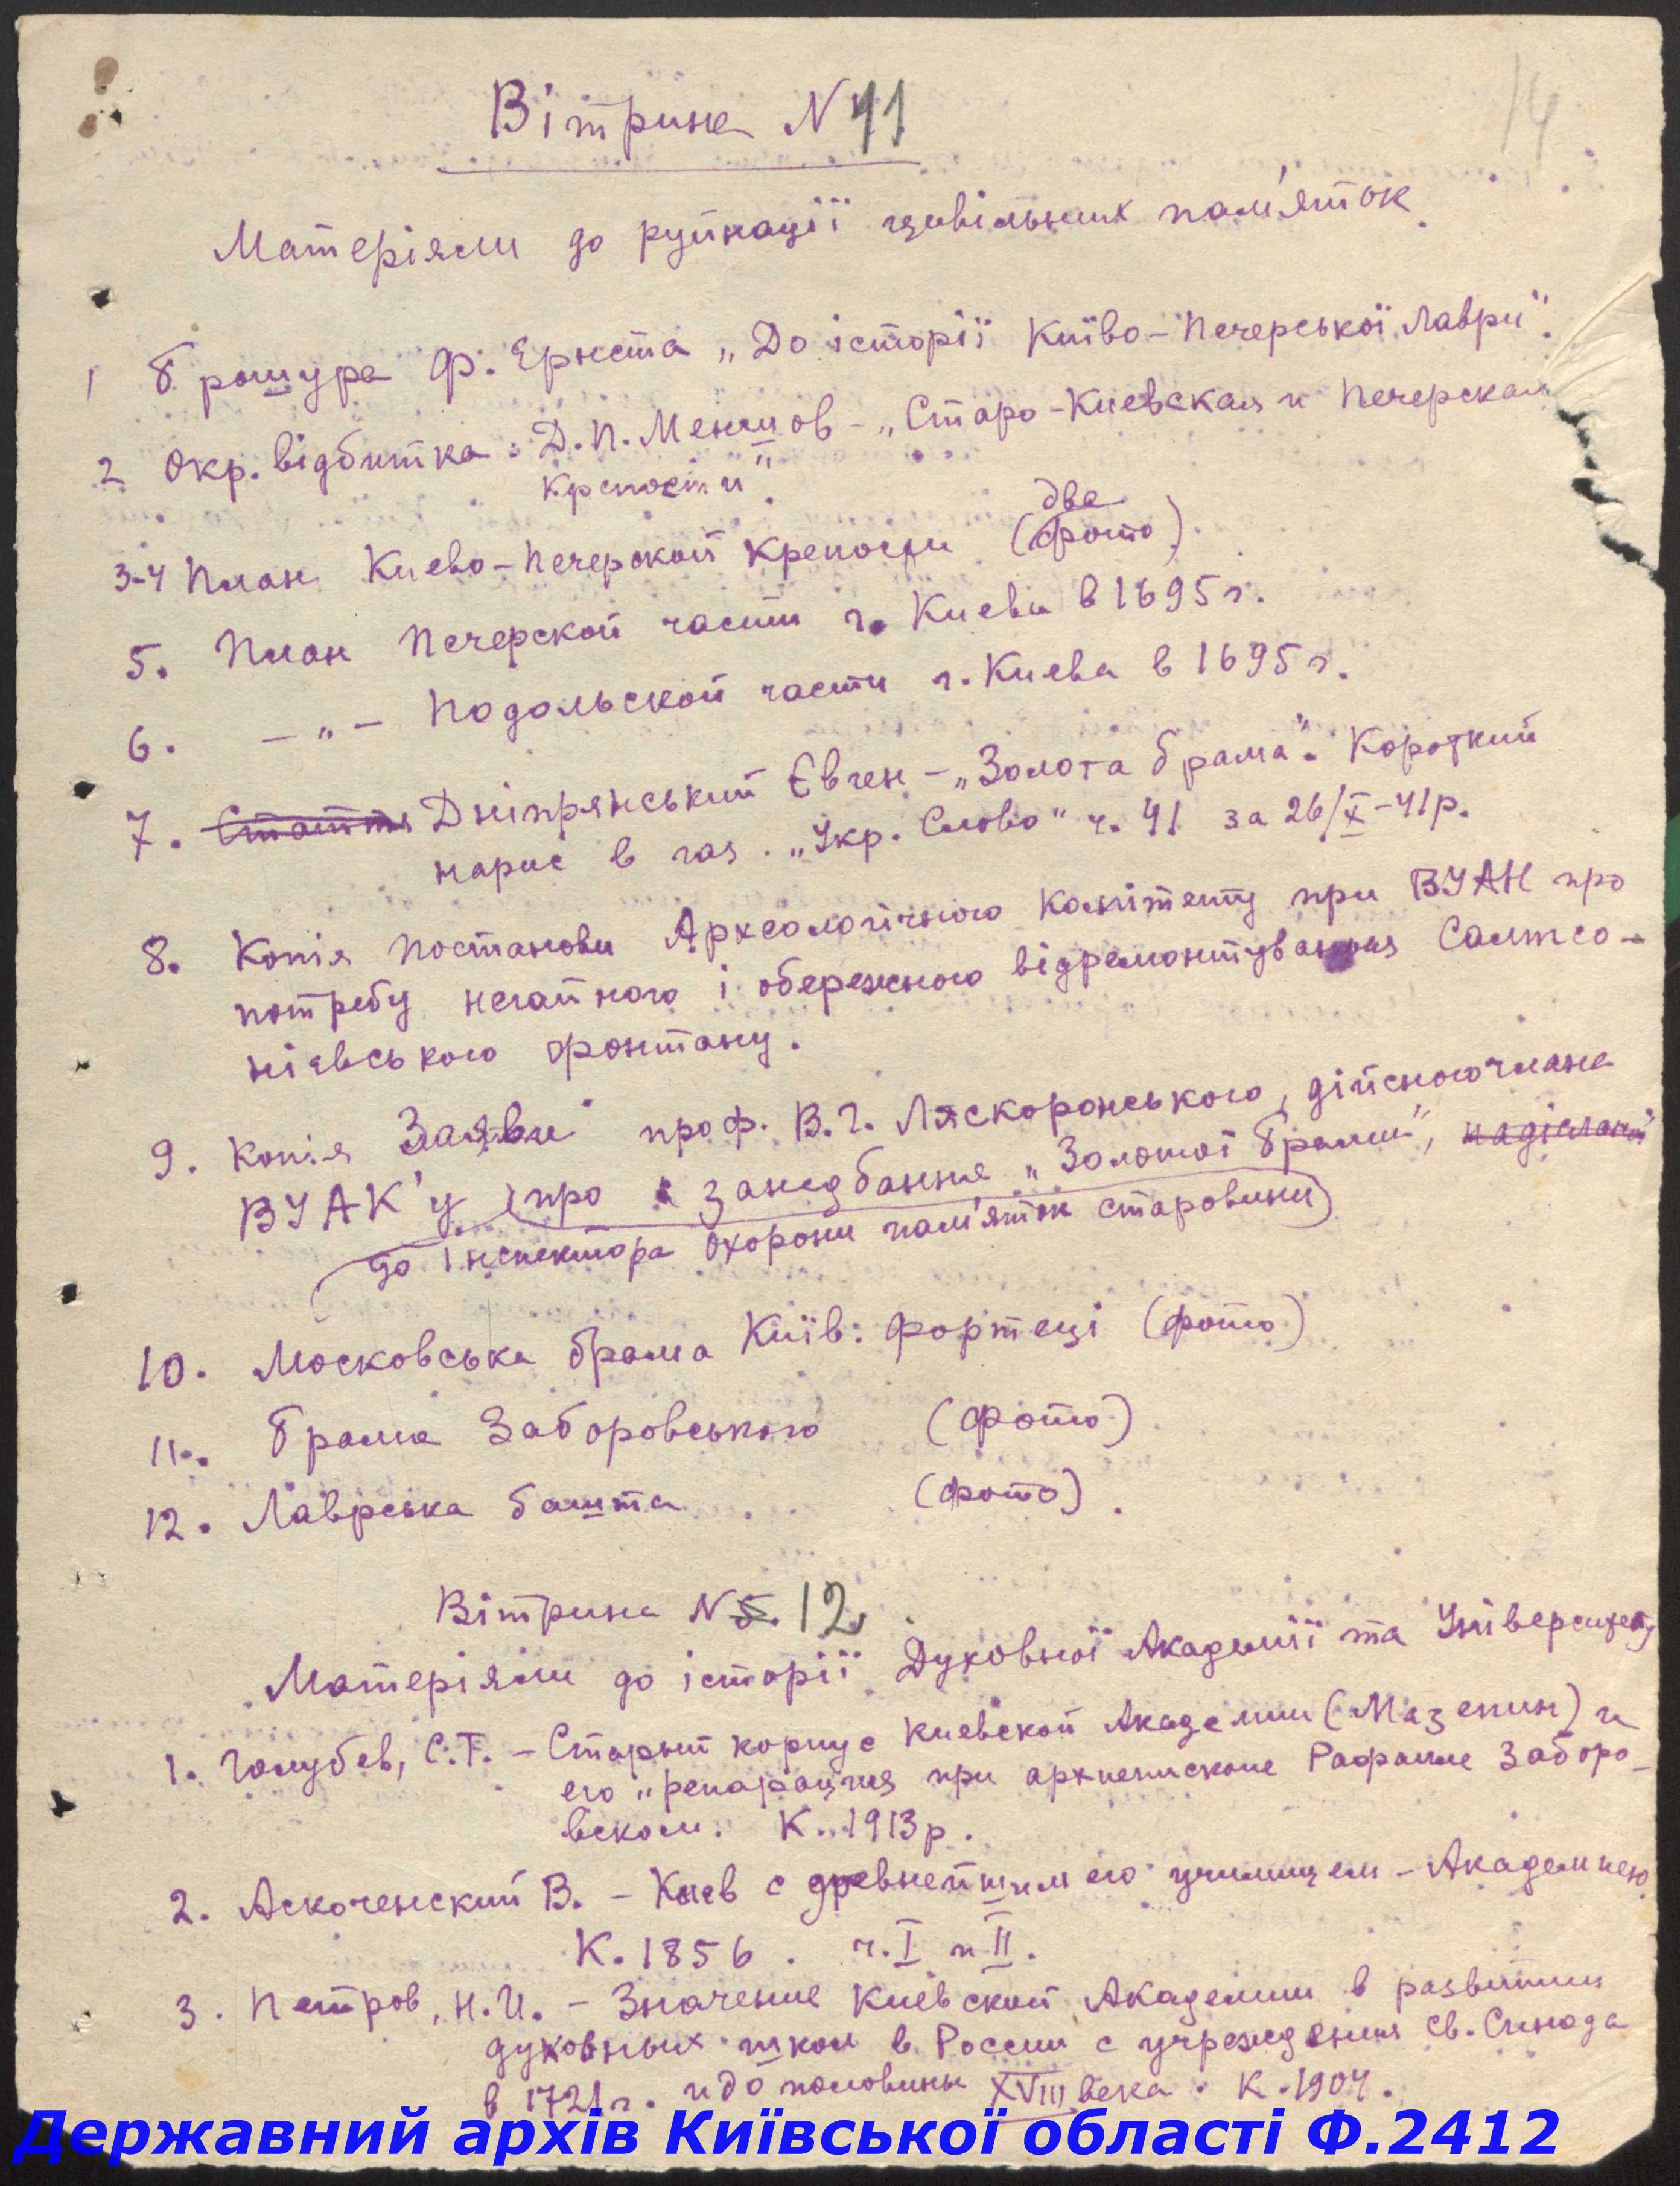 14
Вітрина N 11
Матеріяли до руйнації цивільних пам'яток.
1 Брошура Ф. Ернста „До історії Київо-Печерської Лаври".
2 Окр. відбитка: Д.П. Меншов - „Старо-Киевская и Печерская
крепости".
две
3-4 План Киево-Печерской крепости (фото).
5. План Печерской части г. Киева в 1695 г.
6. - „ - Подольской части г. Киева в 1695 г.
7. Стаття Дніпрянський Євген - „Золота брама". Короткий
нарис в газ. „Укр. Слово" ч. 41 за 26/X-41р.
8. Копія постанови Археологічного комітету при ВУАН про
потребу негайного і обережного відремонтування Самсо-
нієвського фонтану.
9. Копія Заяви проф. В.Г. Ляскоронського, дійсного члана
ВУАК'у (про занедбання „Золотої Брами", надісланої
до Інспектора охорони пам'яток старовини)
10. Московська брама Київ: фортеці (фото)
11. Брама Заборовського (фото)
12. Лаврська башта (фото).
Вітрина N 5. 12
Матеріяли до історії Духовної Академії та Університету
1. Голубев, С.Т. - Старый корпус Киевской Академии (Мазепин) и
его „репарация при архиепископе Рафаиле Заборо-
вском. К. 1913р.
2. Аскоченский В. - Киев с древнейшим его училищем - Академиею.
К. 1856. ч. I и II.
3. Петров, Н.И. - Значение Киевской Академии в развитии
духовных школ в России с учреждения св. Синода
в 1721 г. и до половины XVIII века. К. 1904.
Державний архів Київської області Ф.2412